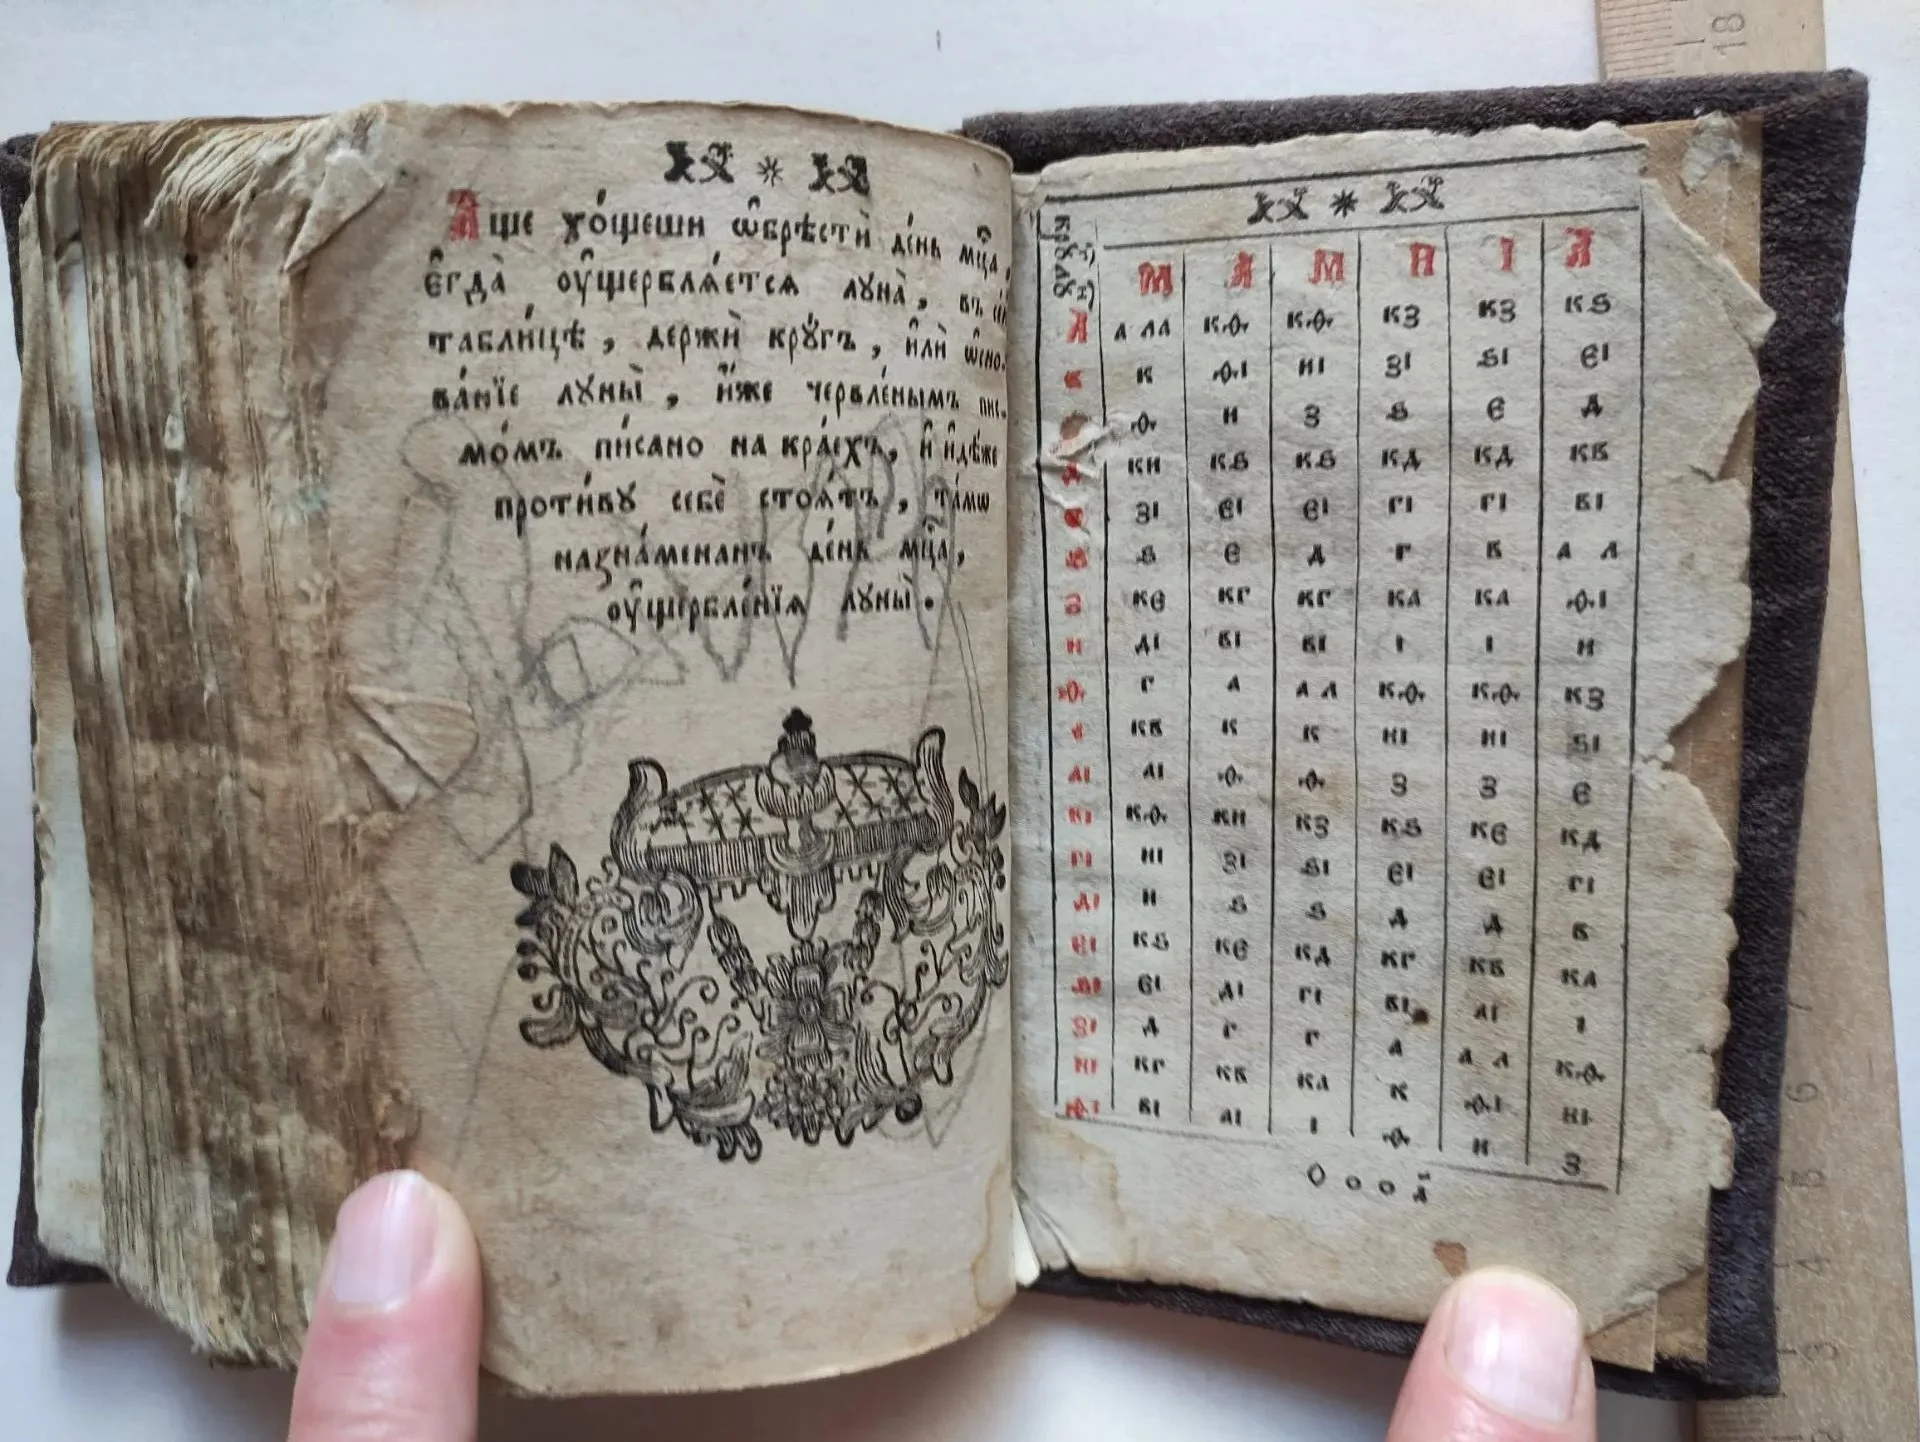 А҆ще хо́щеши ѡ҆брѣстѝ де́нь мц҃а,
є҆гда̀ ᲂу҆щербла́етсѧ лꙋна̀, въ
табли́цѣ, держѝ крꙋ́гъ, и҆лѝ ѡ҆сно-
ва́нїе лꙋны̀, и҆́же червле́нымъ пис-
мо́мъ пи́сано на кра́ехъ, и҆ и҆дѣ́же
проти́вꙋ себѐ стоѧ́тъ, та́мѡ
назна́менанъ де́нь мц҃а,
ᲂу҆щербле́нїѧ лꙋны̀.
М А М І І А
А а ла кѳ кѳ кз кз кѕ
к ѳі иі зі ѕі єі
ѳ и з ѕ є д
Д ки кѕ кѕ кд кд кв
зі єі єі гі гі ві
Ѕ ѕ є д г в а л
З кє кг кг ка ка ѳі
И ді ві ві і і и
Ѳ г а а л кѳ кѳ кз
І кв к к иі иі ѕі
АІ аі ѳ ѳ з з є
ВІ кѳ ки кз кѕ кє кд
ГІ иі зі ѕі єі єі гі
ДІ и ѕ ѕ д д в
ЄІ кѕ кє кд кг кв ка
ЅІ єі ді гі ві аі і
ЗІ д г г а а л кѳ
ИІ кг кв ка к ѳі иі
ѲІ ві аі і ѳ и з
18
6
5
4
3